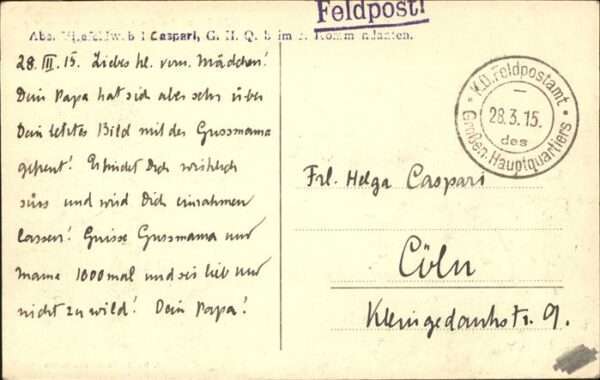 Feldpost!
Abs. Vizefeldweb l Caspari, G. H. Q. beim Kommandanten.
28. III. 15. Liebes kl. vern. Mädchen!
Dein Papa hat sich aber sehr über
Dein letztes Bild mit der Grossmama
gefreut! Er findet Dich wirklich
süss und wird Dich einrahmen
lassen! Grüsse Grossmama und
Mama 1000 mal und sei lieb und
nicht zu wild! Dein Papa!
K.D. Feldpostamt
28.3.15.
des
Großen Hauptquartiers
Frl. Helga Caspari
Cöln
Kleingedankstr. 9.